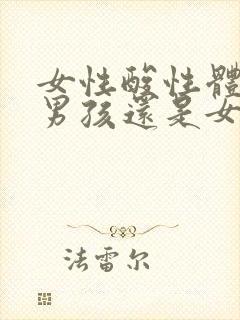 女性酸性體
男孩還是女
法雷尔